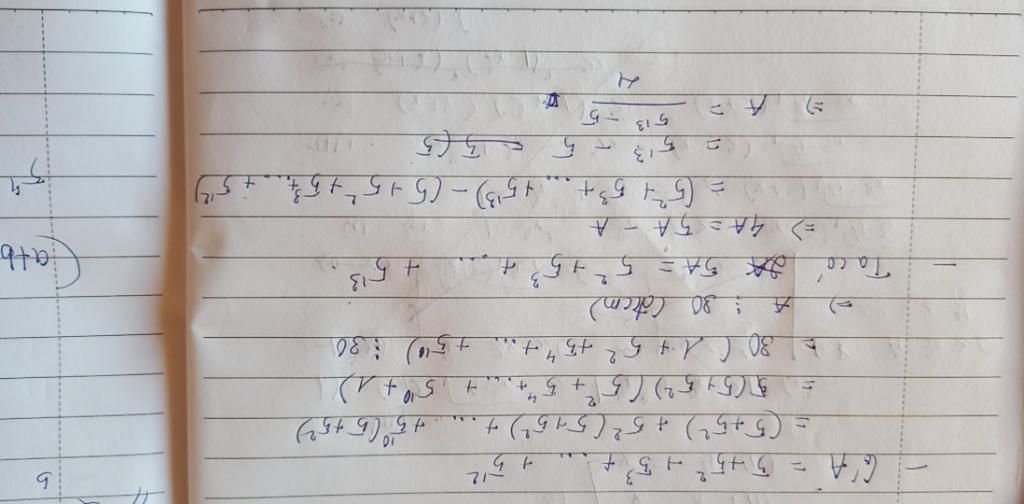 - C/ A = 5 + 5² + 5³ + ... + 5¹²
= (5 + 5²) + 5² (5 + 5²) + ... + 5¹⁰ (5 + 5²)
= (5 + 5²) (5² + 5⁴ + ... + 5¹⁰ + 1)
= 30 (1 + 5² + 5⁴ + ... + 5¹⁰) ⋮ 30
=> A ⋮ 30 (đfcm)
- Ta có 5A = 5² + 5³ + ... + 5¹³
=> 4A = 5A - A
= (5² + 5³ + ... + 5¹³) - (5 + 5² + 5³ + ... + 5¹²)
= 5¹³ - 5
=> A = (5¹³ - 5) / 4
b
(a+b